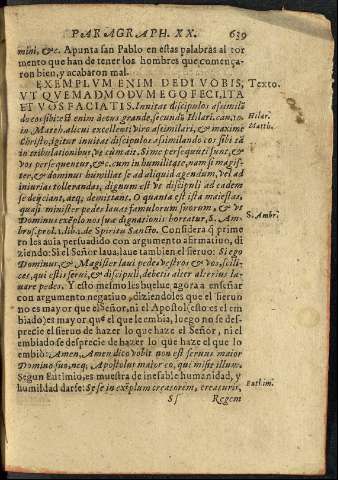 PARAGRAPH. XX. 639
mini, &c. Apunta san Pablo en estas palabras al tor
mento que han de tener los hombres que comença-
ron bien, y acabaron mal.
EXEMPLVM ENIM DEDI VOBIS, Texto.
VT QVEMADMODVM EGO FECI, ITA
ET VOS FACIATIS. Inuitat discipulos assimilā
do eos sibi: est enim decus grande, secundū Hilari. can. 10. Hilar.
in Matth. alicui excellenti viro assimilari, & maxime Matth.
Christo, igitur inuitat discipulos assimilando eos sibi tā
in tribulationibus, vt cùm ait. Si me persequuti sunt, & 
vos persequentur, &c. cum in humilitate, nam si magis-
ter, & dominus humiliat se ad aliquid agendum, vel ad
iniurias tollerandas, dignum est vt discipuli ad eadem
se deijciant, atq; demittant. O quanta est ista maiestas,
quasi minister pedes lauat famulorum suorum, & vt
Dominus exēplo nos suæ dignationis hortatur, S. Am- S. Ambr.
bros. prol. lib. 1. de Spiritu Sancto. Considera q̃ prime
ro les auia persuadido con argumento afirmatiuo, di
ziendo: Si el Señor laua, laue tambien el sieruo: Si ego
Dominus, & Magister laui pedes vestros & vos, scili-
ces, qui estis serui, & discipuli, debetis alter alterius la-
uare pedes. Y esto mesmo les buelue agora a enseñar
con argumento negatiuo, diziendoles que el sieruo
no es mayor que el Señor, ni el Apostol (esto es el em
biado) es mayor, que el que le embia, luego no se des-
precie el sieruo de hazer lo que haze el Señor, ni el
embiado se desprecie de hazer lo que haze el que lo
embiò: Amen, Amen dico vobis non est seruus maior
Domino suo, neq; Apostolus maior eo, qui misit illum.
Segun Eutimio, es muestra de inefable humanidad, y
humildad darse: Se se in exēplum creatorem, creaturis, Euthim.
Sſ Regem